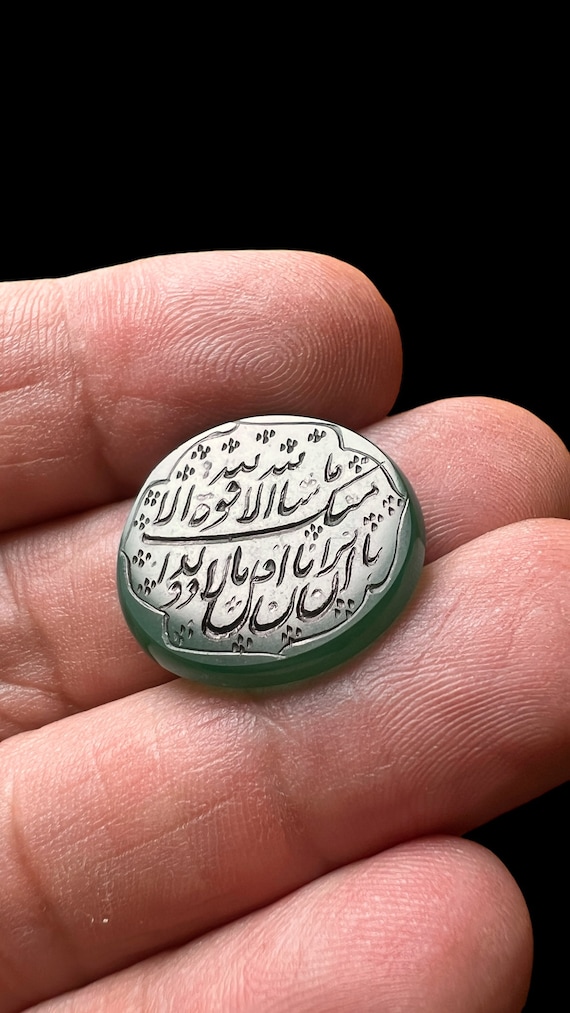 ما شا الله لا قوة الا
بالله ان ترن انا اقل منك مالا وولدا